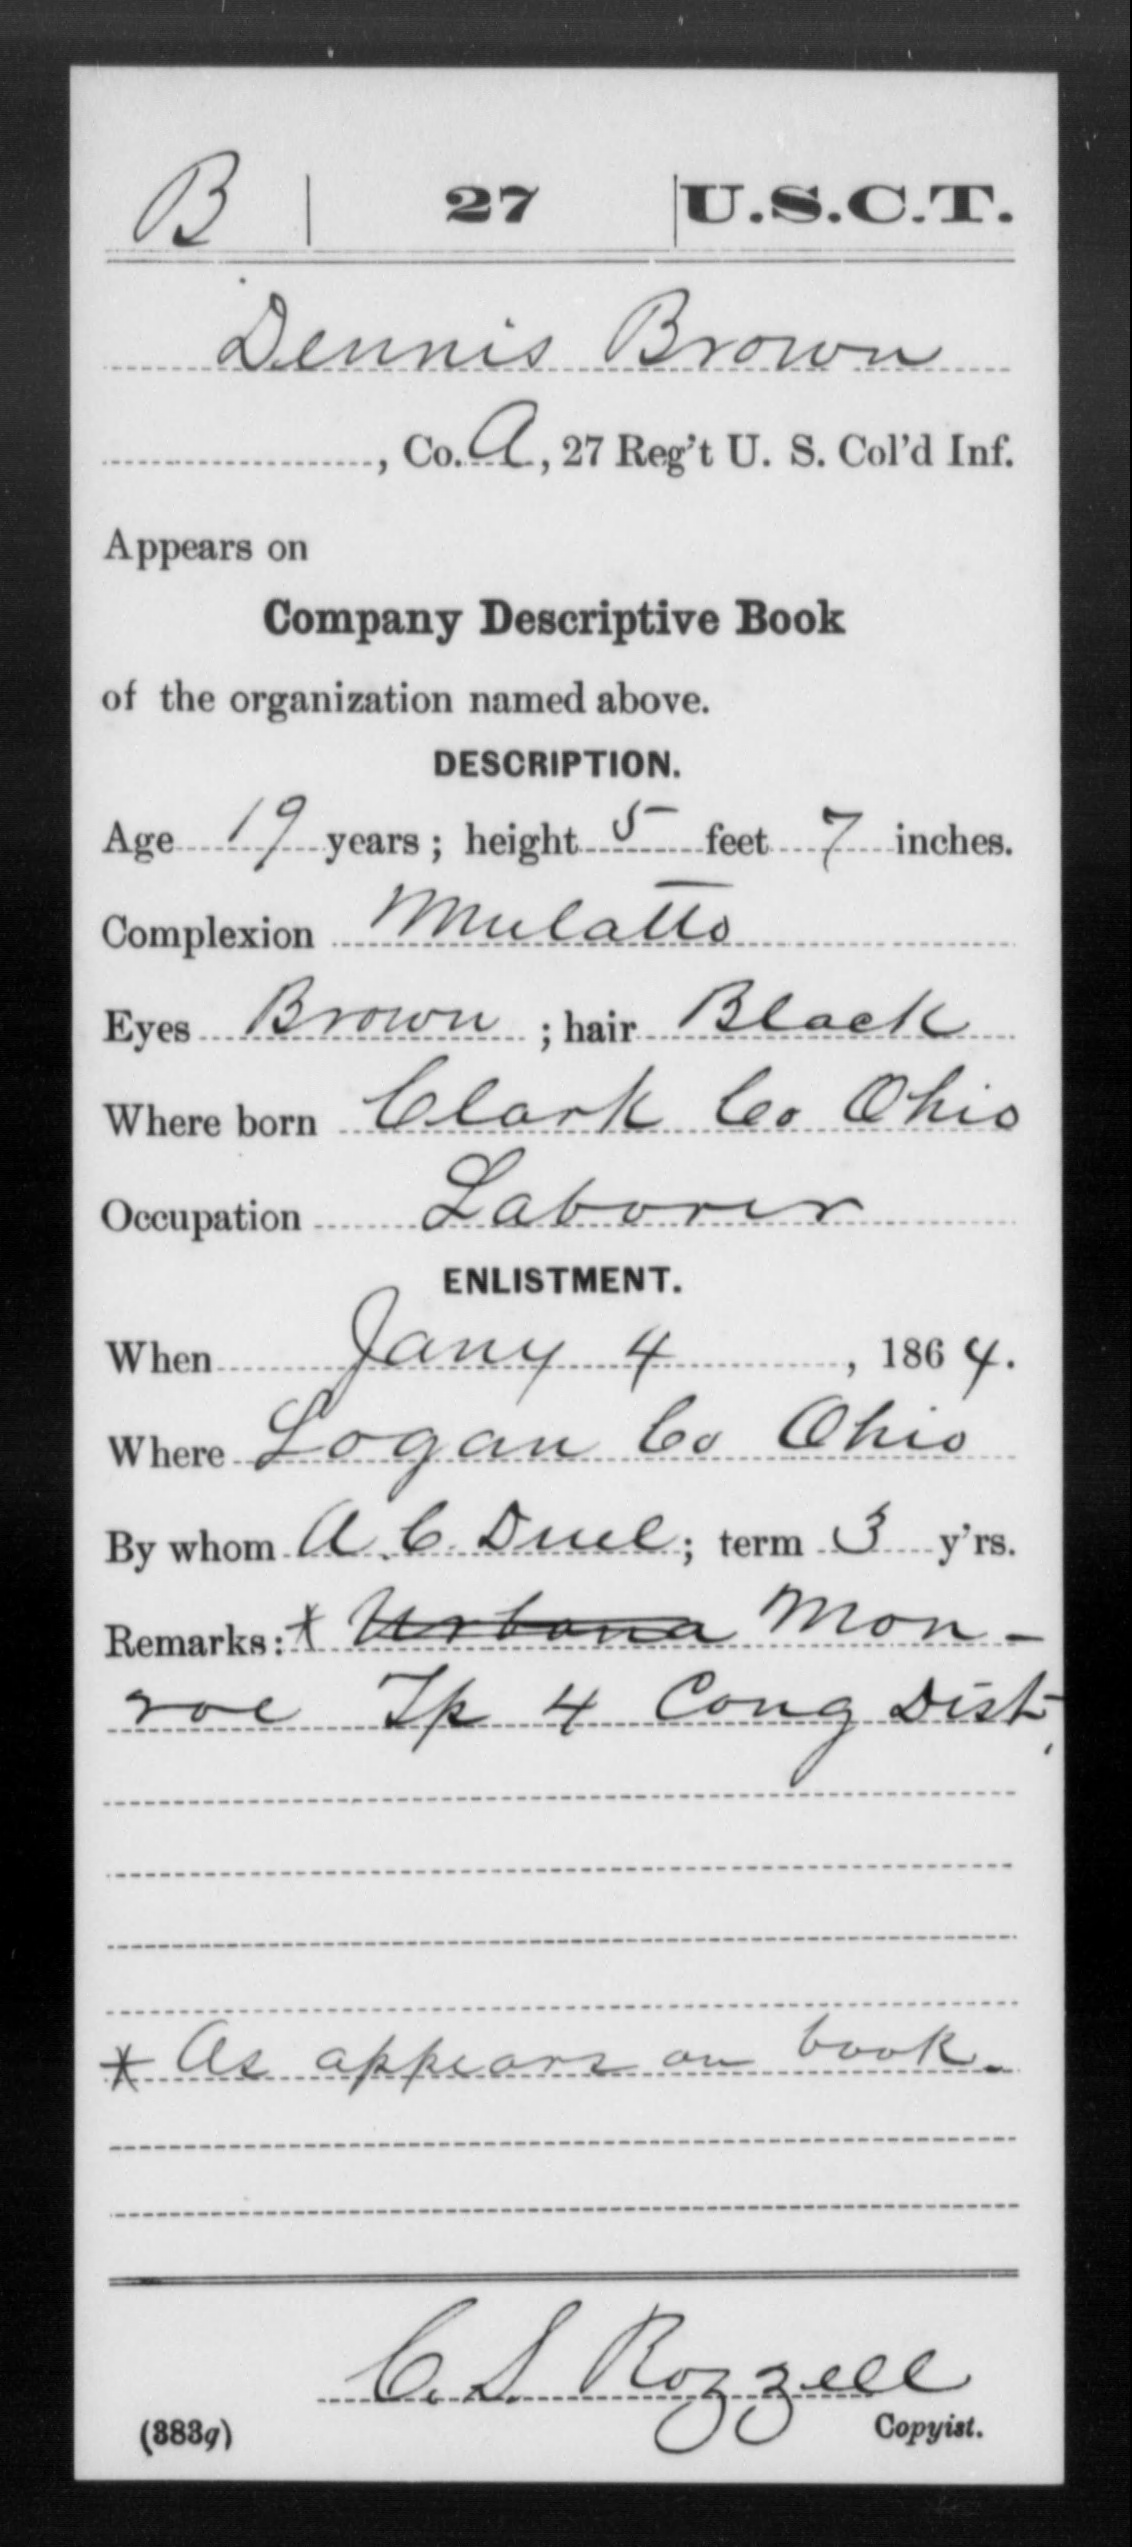 B | 27 | U.S.C.T.
Dennis Brown
, Co. A, 27 Reg't U. S. Col'd Inf.
Appears on
Company Descriptive Book
of the organization named above.
DESCRIPTION.
Age 19 years; height 5 feet 7 inches.
Complexion Mulatto
Eyes Brown; hair Black
Where born Clark Co Ohio
Occupation Laborer
ENLISTMENT.
When Jany 4, 1864.
Where Logan Co Ohio
By whom A. C. Duel; term 3 y'rs.
Remarks: * Urbana Mon-
roe Tp 4 Cong Dist.
* As appears on book.
C. S. Rozzell
(383g) Copyist.